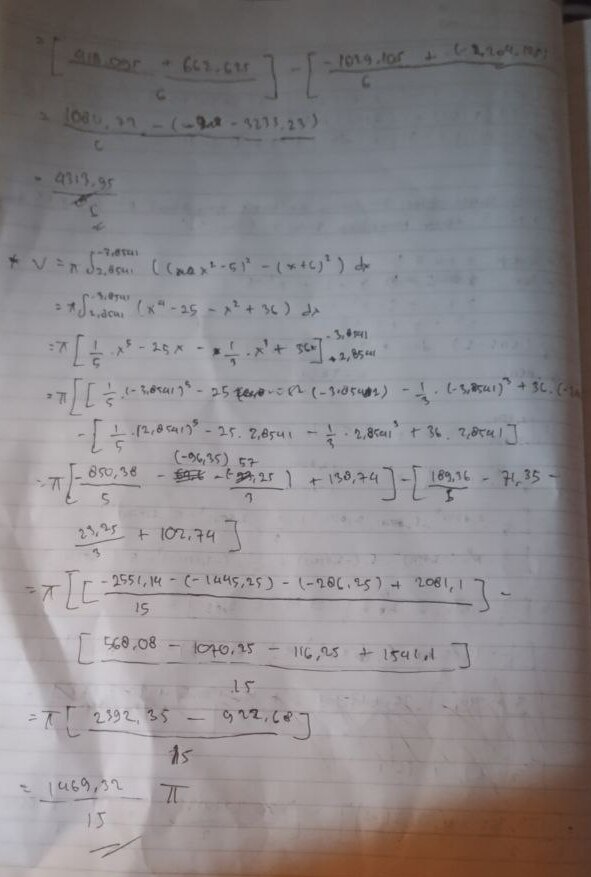 = [ 418,095 + 662,625 / 6 ] - [ -1029,105 + (-2,204,125) / 6
= 1080,72 - (-3233,23) / 6
= 4313,95 / 6
* V = π ∫ 2,8541 ^ -3,8541 ( ( x² - 5)² - (x+6)² ) dx
= π ∫ 2,8541 ^ -3,8541 (x⁴ - 25 - x² + 36) dx
= π [ 1/5 . x⁵ - 25x - 1/3 . x³ + 36x ] -3,8541 2,8541
= π [ [ 1/5 . (-3,8541)⁵ - 25 (-3,8541) - 1/3 . (-3,8541)³ + 36 .
- [ 1/5 (2,8541)⁵ - 25. 2,8541 - 1/3 . 2,8541³ + 36. 2,8541 ]
= π [ -850,38 / 5 - (-96,35) 57,25 / 3 ) + 138,74 ] - [ 189,36 / 5 - 71,35 -
23,25 / 3 + 102,74 ]
= π [ [ -2551,14 - (-1445,25) - (-286,25) + 2081,1 / 15 ] -
[ 568,08 - 1070,25 - 116,25 + 1541,1 / 15 ]
= π [ 2392,35 - 922,68 ] / 15
= 1469,32 / 15 π